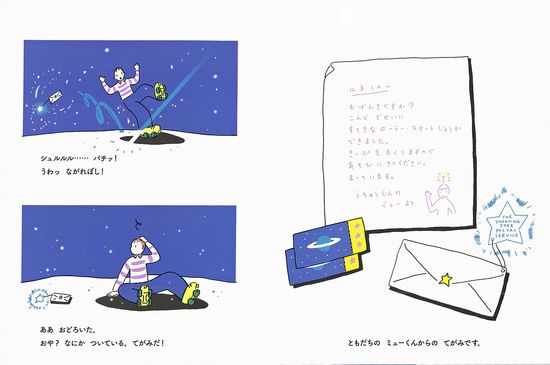 シュルルル…… バチッ！
うわっ ながれぼし！
と
ああ おどろいた。
おや？ なにか ついている。てがみだ！
ルネ くんへ
おげんきですか？
こんど どせいに
すてきな ローラー・スケートじょうが
できました。
きっぷ を おくりますので
あそびに きてください。
まっています。
うちゅうじんの
ミューより
THE
SHOOTING
STAR
POSTAL
SERVICE
ともだちの ミューくんからの てがみです。